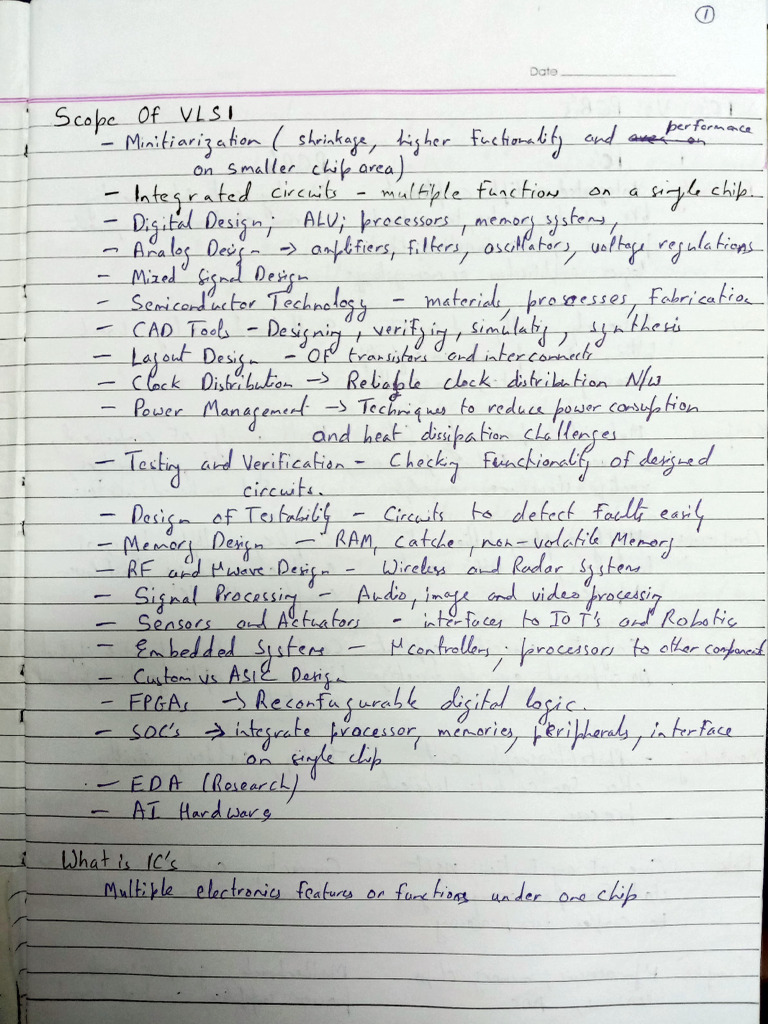 1
Date
Scope Of VLSI
- Minitiarization ( shrinkage, higher fuctionality and performance
on smaller chip area)
- Integrated circuits - multiple function on a single chip.
- Digital Design; ALU; processors, memory systems,
- Analog Design → amplifiers, filters, oscillators, voltage regulations
- Mixed Signal Design
- Semiconductor Technology - materials, processes, fabrication
- CAD Tools - Designing, verifying, simulatig, synthesis
- Layout Design - Of transistors and interconnects
- Clock Distribution → Reliable clock distribution N/w
- Power Management → Techniques to reduce power consuption
and heat dissipation challenges
- Testing and Verification - Checking functionality of designed
circuits.
- Design of Testability - Circuits to detect faults easily
- Memory Design - RAM, Catche, non-volatile Memory
- RF and μwave Design - Wireless and Radar Systems
- Signal Processing - Audio, image and video processing
- Sensors and Actuators - interfaces to IoT's and Robotics
- Embedded Systems - μcontrollers, processors to other component
- Custom vs ASIC Design
- FPGAs → Reconfugurable digital logic.
- SOC's → integrate processor, memories, peripherals, interface
on single chip
- EDA (Research)
- AI Hardware
What is IC's
Multiple electronics features or functions under one chip